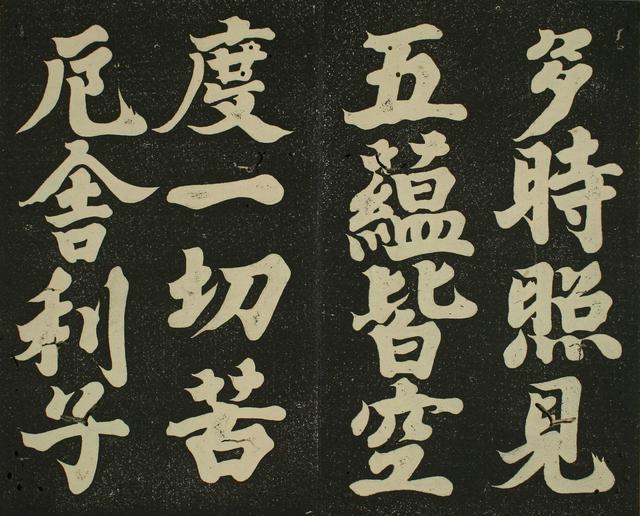 多時照見
五蘊皆空
度一切苦
厄舎利子